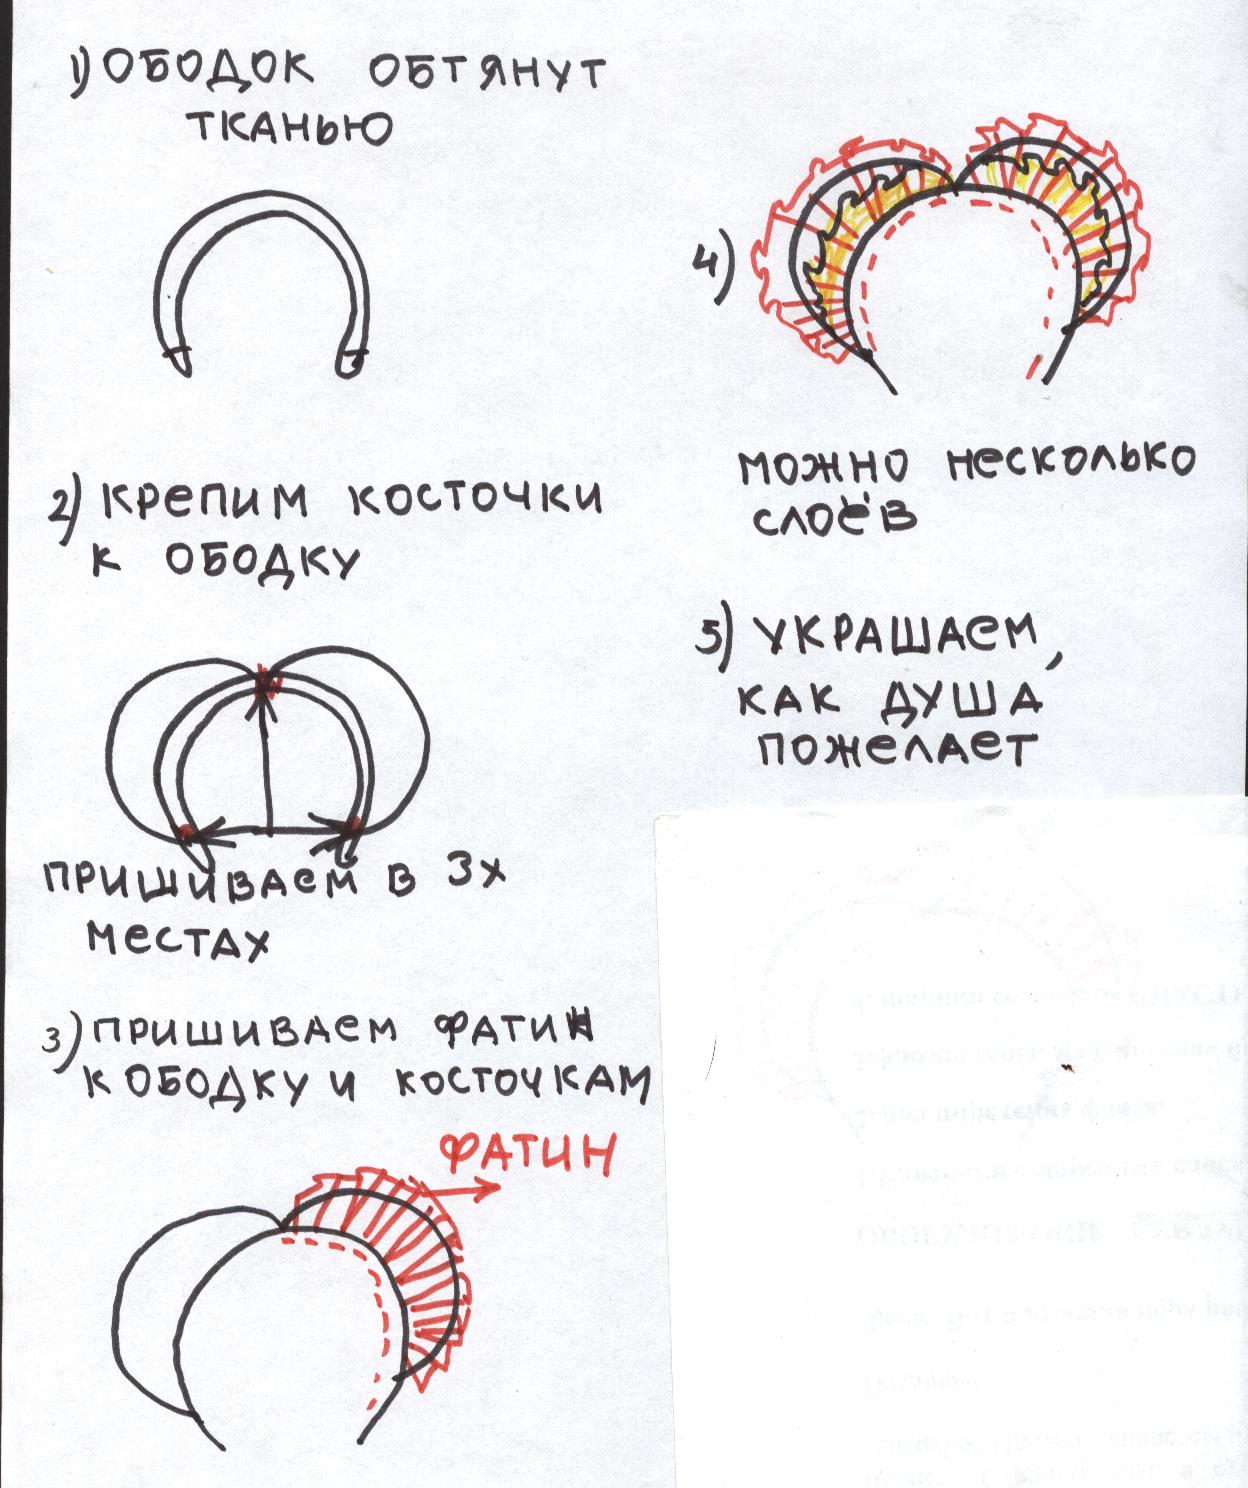 1) ОБОДОК ОБТЯНУТ
ТКАНЬЮ
2) КРЕПИМ КОСТОЧКИ
К ОБОДКУ
ПРИШИВАЕМ В 3Х
МЕСТАХ
3) ПРИШИВАЕМ ФАТИН
К ОБОДКУ И КОСТОЧКАМ
ФАТИН
4)
МОЖНО НЕСКОЛЬКО
СЛОЁВ
5) УКРАШАЕМ,
КАК ДУША
ПОЖЕЛАЕТ